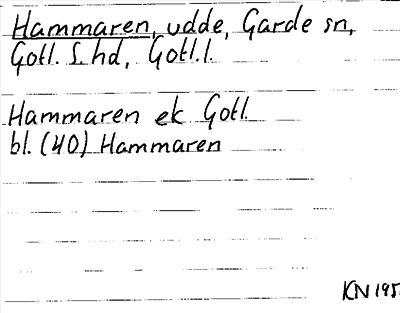 Hammaren, udde, Garde sn,
Gotl. S. hd, Gotl.l.
Hammaren ek Gotl.
bl. (40) Hammaren
KN 195